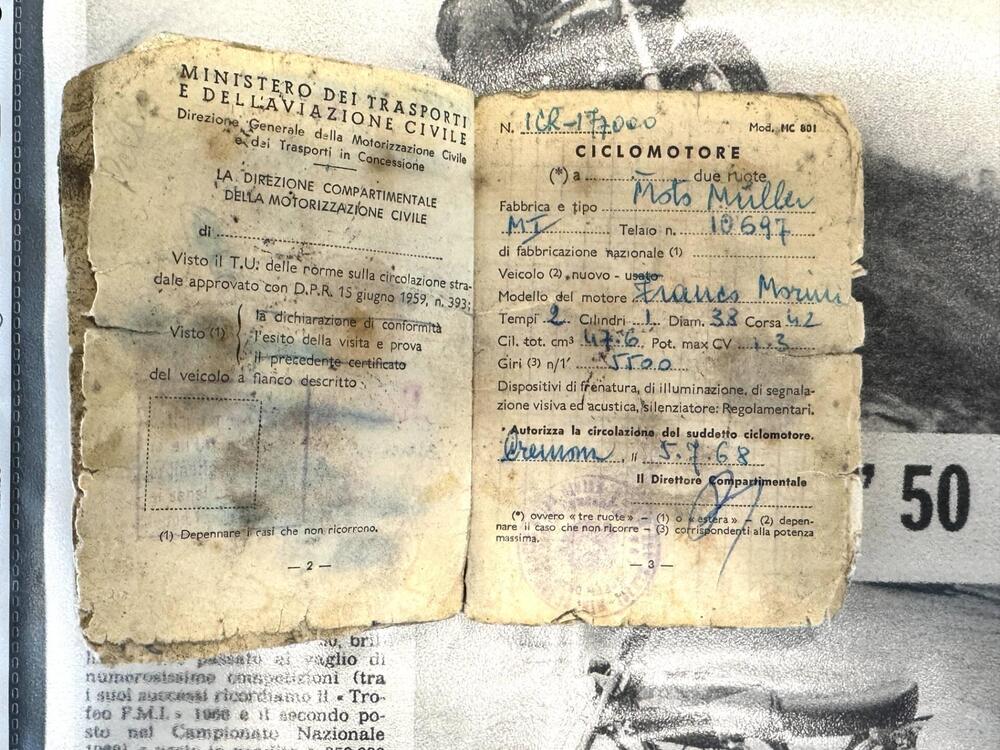 MINISTERO DEI TRASPORTI
E DELL'AVIAZIONE CIVILE
Direzione Generale della Motorizzazione Civile
e dei Trasporti in Concessione
LA DIREZIONE COMPARTIMENTALE
DELLA MOTORIZZAZIONE CIVILE
di
Visto il T.U. delle norme sulla circolazione stra-
dale approvato con D.P.R. 15 giugno 1959, n. 393;
Visto (1)
la dichiarazione di conformità
l'esito della visita e prova
il precedente certificato
del veicolo a fianco descritto
(1) Depennare i casi che non ricorrono.
— 2 —
N. 1CR-177000 Mod. MC 801
CICLOMOTORE
(*) a due ruote
Fabbrica e tipo Moto Müller
MI Telaio n. 10697
di fabbricazione nazionale (1)
Veicolo (2) nuovo - usato
Modello del motore Franco Morini
Tempi 2 Cilindri 1 Diam. 38 Corsa 42
Cil. tot. cm³ 47.6 Pot. max CV 1.3
Giri (3) n/1' 5500
Dispositivi di frenatura, di illuminazione, di segnala-
zione visiva ed acustica, silenziatore: Regolamentari.
Autorizza la circolazione del suddetto ciclomotore.
Cremona, lì 5.7.68
Il Direttore Compartimentale
(*) ovvero « tre ruote » – (1) o « estera » – (2) depen-
nare il caso che non ricorre – (3) corrispondenti alla potenza
massima.
— 3 —
50
passato al vaglio di
numerosissime competizioni (tra
i suoi successi ricordiamo il « Tro-
feo F.M.I. » 1966 e il secondo po-
sto nel Campionato Nazionale